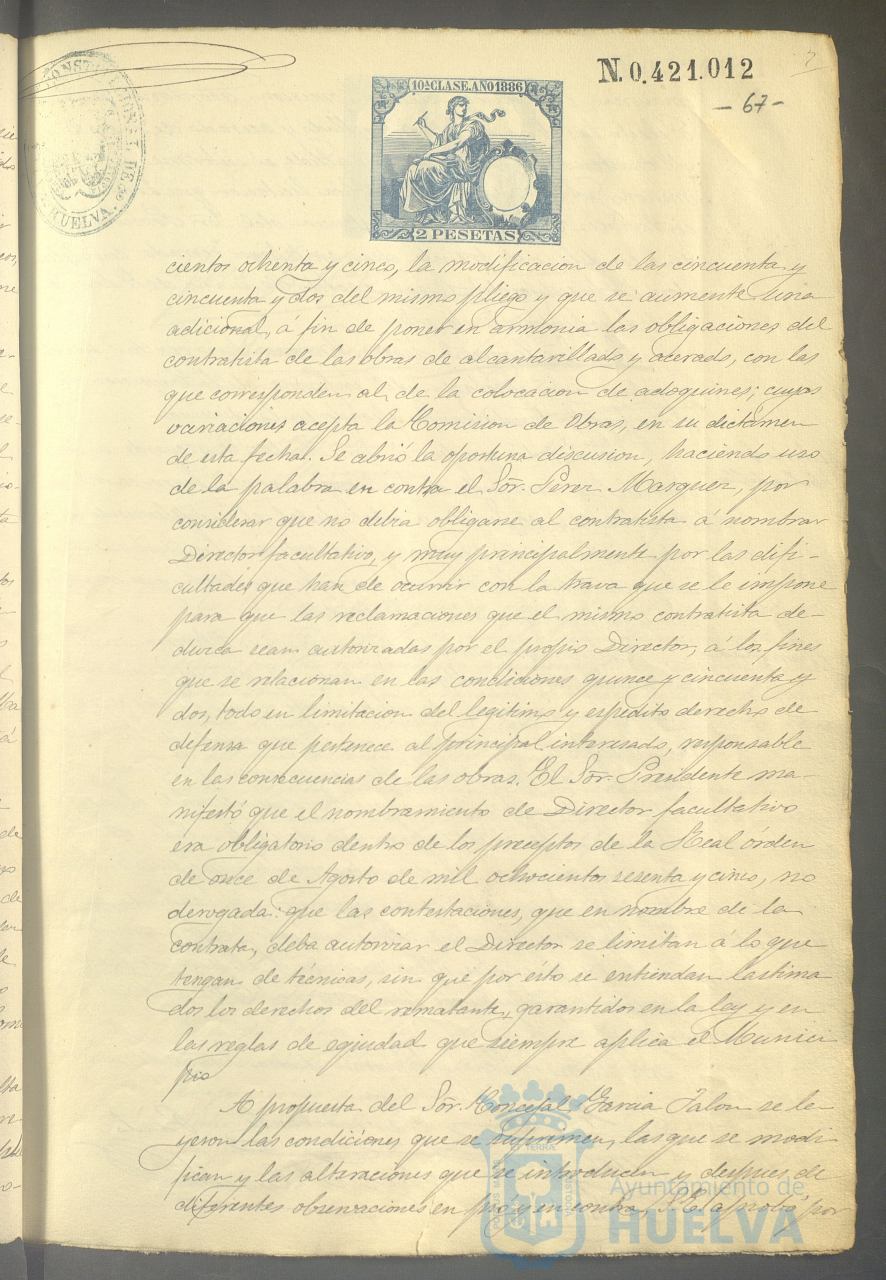 N.0.421.012
- 67 -
10ª CLASE. AÑO 1886
2 PESETAS
CONSTITUCIONAL DE
HUELVA.
cientos ochenta y cinco, la modificacion de las cincuenta y
cincuenta y dos del mismo pliego y que se aumente una
adicional, á fin de poner en armonia las obligaciones del
contratista de las obras de alcantarillado y acerado, con las
que corresponden al de la colocacion de adoquines; cuyas
variaciones acepta la Comision de Obras, en su dictámen
de esta fecha. Se abrió la oportuna discusion, haciendo uso
de la palabra en contra el Sõr. Perez Marquez, por
considerar que no debia obligarse al contratista á nombrar
Director facultativo, y muy principalmente por las difi-
cultades que han de ocurrir con la trava que se le impone
para que las reclamaciones que el mismo contratista de-
duzca sean autorizadas por el propio Director, á los fines
que se relacionan en las condiciones quince y cincuenta y
dos, todo en limitacion del legitimo y espedito derecho de
defensa que pertenece al principal interesado, responsable
en las consecuencias de las obras. El Sõr. Presidente ma-
nifestó que el nombramiento de Director facultativo
era obligatorio dentro de los preceptos de la Real órden
de once de Agosto de mil ochocientos sesenta y cinco, no
derogada: que las contestaciones, que en nombre de la
contrata, deba autorizar el Director se limitan á lo que
tengan de técnicas, sin que por ésto se entiendan lastima
dos los derechos del rematante, garantidos en la ley y en
las reglas de equidad que siempre aplica el Munici
pio
A propuesta del Sõr. Concejal Garcia Jalon se le-
yeron las condiciones que se suprimen, las que se modi-
fican y las alteraciones que se introducen y despues de
diferentes observaciones en pró y en contra, S.E. aprobó por
Ayuntamiento de
HUELVA